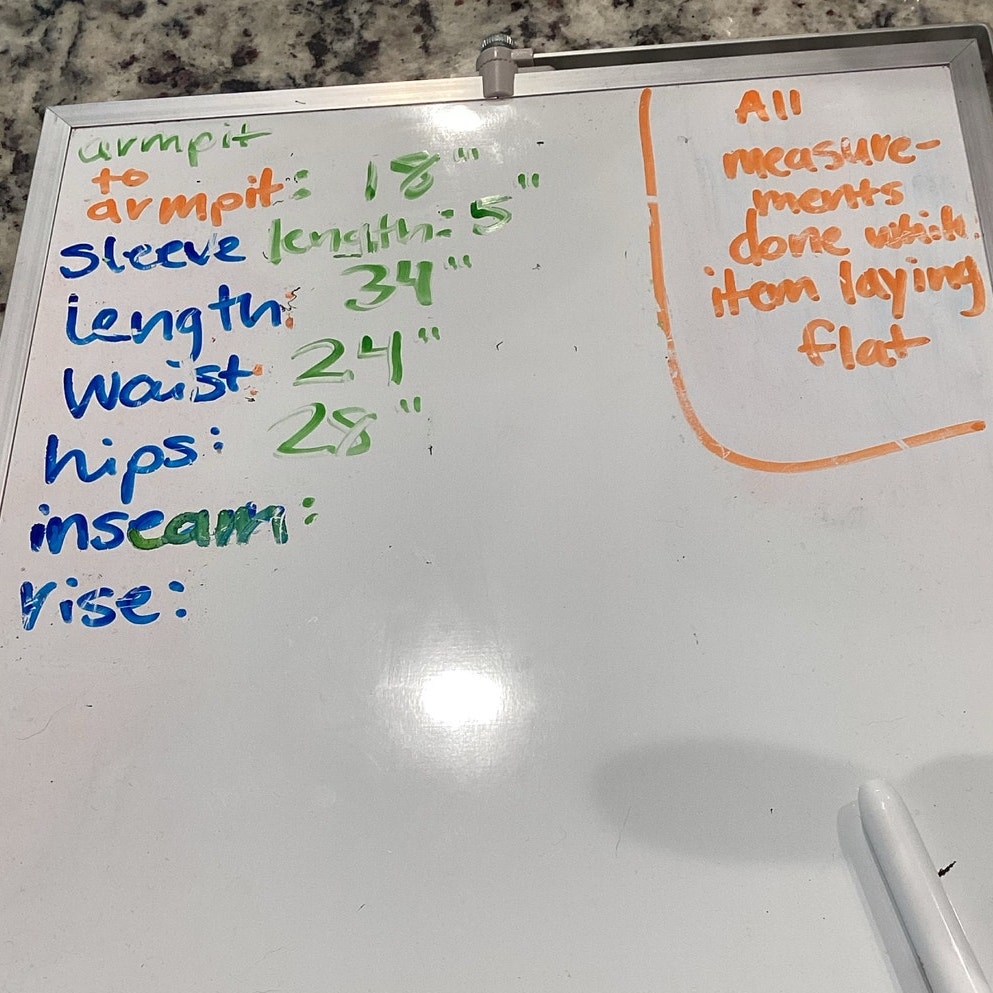 armpit
to
armpit: 18"
sleeve length: 5"
length: 34"
Waist: 24"
hips: 28"
inseam:
rise:
All
measure-
ments
done
item laying
flat